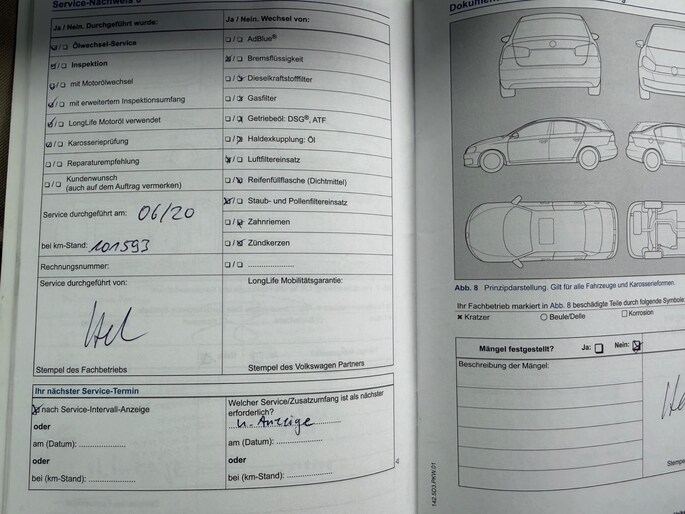 Service-Nachweis
Ja / Nein. Durchgeführt wurde:
☑/☐ Ölwechsel-Service
☑/☐ Inspektion
☑/☐ mit Motorölwechsel
☑/☐ mit erweitertem Inspektionsumfang
☑/☐ LongLife Motoröl verwendet
☑/☐ Karosserieprüfung
☐/☐ Reparaturempfehlung
☐/☐ Kundenwunsch
(auch auf dem Auftrag vermerken)
Service durchgeführt am: 06/20
bei km-Stand: 101593
Rechnungsnummer:
Service durchgeführt von:
Stempel des Fachbetriebs
Ja / Nein. Wechsel von:
☐/☐ AdBlue®
☒/☐ Bremsflüssigkeit
☐/☒ Dieselkraftstofffilter
☐/☒ Gasfilter
☐/☒ Getriebeöl: DSG®, ATF
☐/☒ Haldexkupplung: Öl
☒/☐ Luftfiltereinsatz
☐/☒ Reifenfüllflasche (Dichtmittel)
☒/☐ Staub- und Pollenfiltereinsatz
☐/☒ Zahnriemen
☐/☒ Zündkerzen
☐/☐ .....................
LongLife Mobilitätsgarantie:
Stempel des Volkswagen Partners
Ihr nächster Service-Termin
☒ nach Service-Intervall-Anzeige
oder
am (Datum): .....................
oder
bei (km-Stand): .....................
Welcher Service/Zusatzumfang ist als nächster
erforderlich?
n. Anzeige
am (Datum): .....................
oder
bei (km-Stand): .....................
4
Abb. 8 Prinzipdarstellung. Gilt für alle Fahrzeuge und Karosserieformen.
Ihr Fachbetrieb markiert in Abb. 8 beschädigte Teile durch folgende Symbole
× Kratzer ○ Beule/Delle ☐ Korrosion
Mängel festgestellt? Ja: ☐ Nein: ☒
Beschreibung der Mängel:
142.5D3.PKW.01